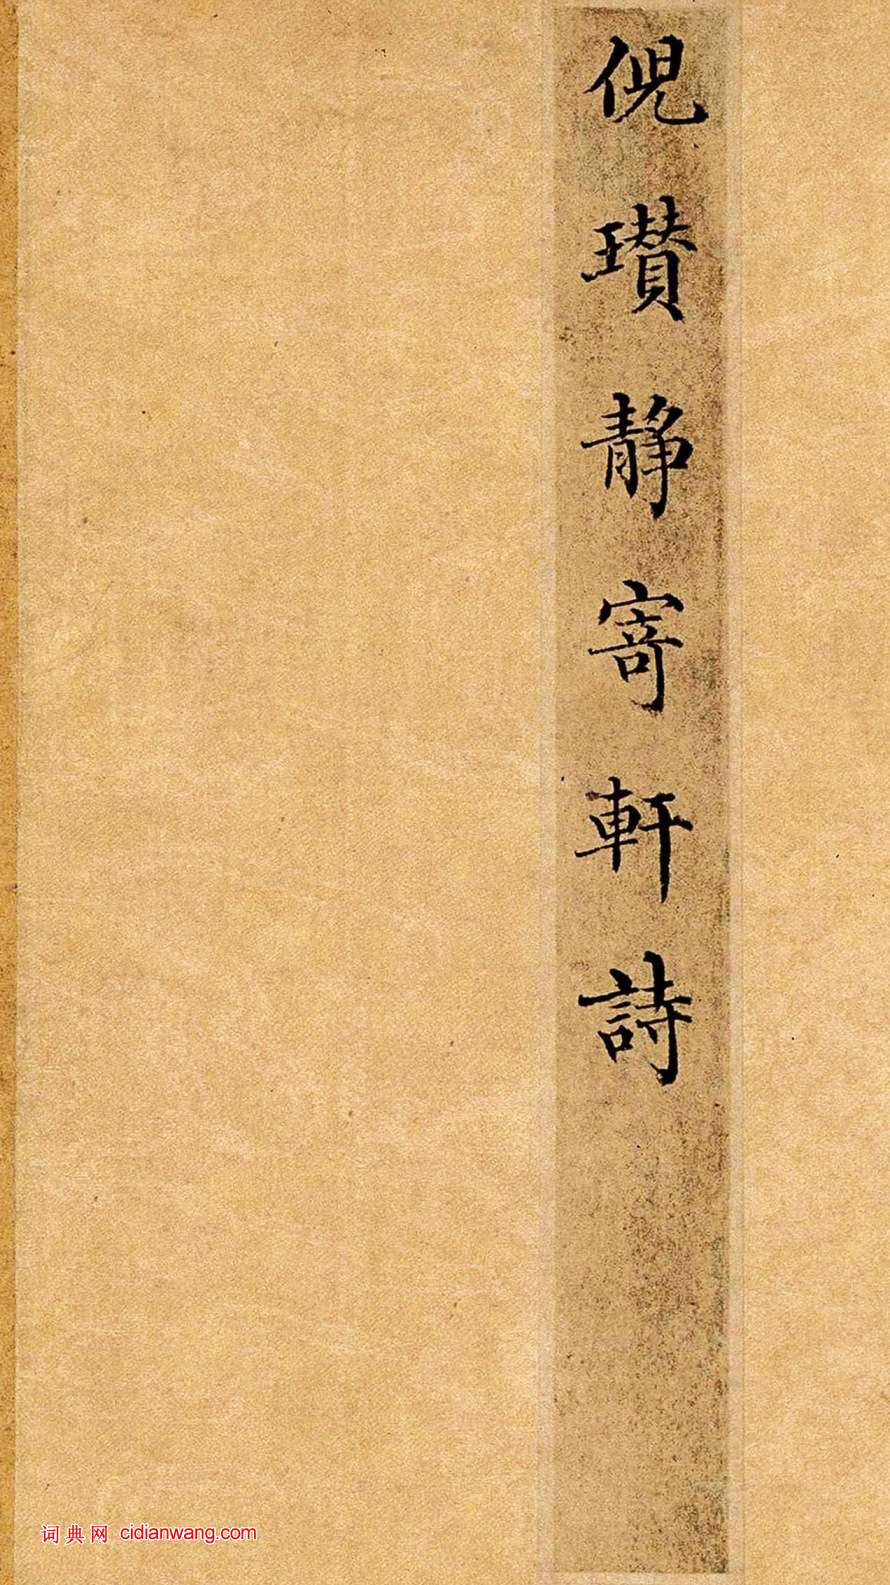 倪瓚静寄軒詩
词典网 cidianwang.com